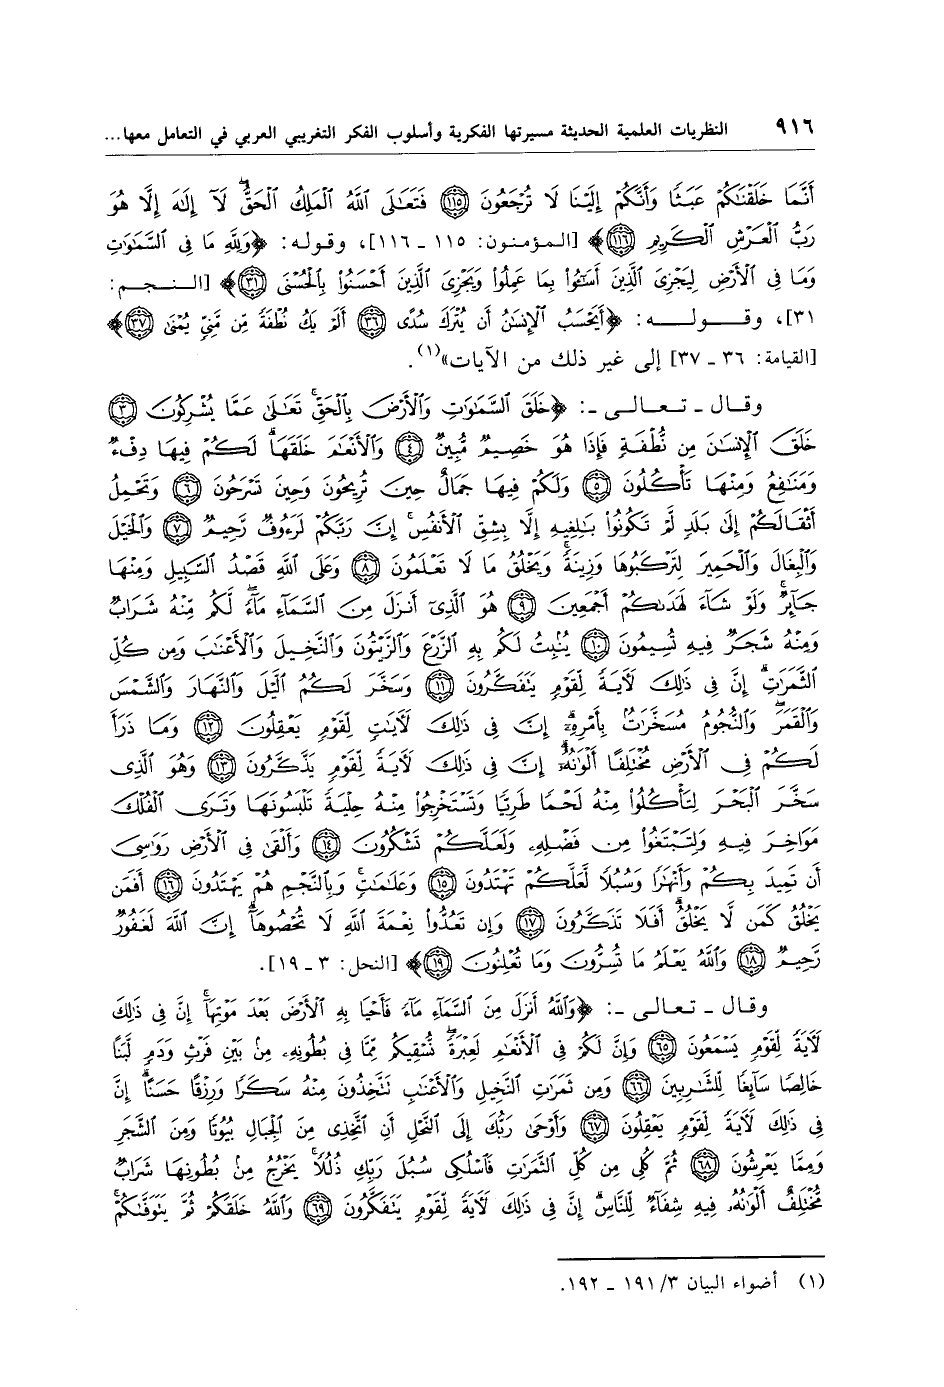 ٩١٦ النظريات العلمية الحديثة مسيرتها الفكرية وأسلوب الفكر التغريبي العربي في التعامل معها...
أَنَّمَا خَلَقْنَٰكُمْ عَبَثًا وَأَنَّكُمْ إِلَيْنَا لَا تُرْجَعُونَ ﴿١١٥﴾ فَتَعَٰلَى ٱللَّهُ ٱلْمَلِكُ ٱلْحَقُّ ۖ لَآ إِلَٰهَ إِلَّا هُوَ
رَبُّ ٱلْعَرْشِ ٱلْكَرِيمِ ﴿١١٦﴾﴾ [المؤمنون: ١١٥ ـ ١١٦]، وقوله: ﴿وَلِلَّهِ مَا فِى ٱلسَّمَٰوَٰتِ
وَمَا فِى ٱلْأَرْضِ لِيَجْزِىَ ٱلَّذِينَ أَسَٰٓـُٔوا۟ بِمَا عَمِلُوا۟ وَيَجْزِىَ ٱلَّذِينَ أَحْسَنُوا۟ بِٱلْحُسْنَى ﴿٣١﴾﴾ [النجم:
٣١]، وقوله: ﴿أَيَحْسَبُ ٱلْإِنسَٰنُ أَن يُتْرَكَ سُدًى ﴿٣٦﴾ أَلَمْ يَكُ نُطْفَةً مِّن مَّنِىٍّ يُمْنَىٰ ﴿٣٧﴾﴾
[القيامة: ٣٦ ـ ٣٧] إلى غير ذلك من الآيات»(١).
وقال ـ تعالى ـ: ﴿خَلَقَ ٱلسَّمَٰوَٰتِ وَٱلْأَرْضَ بِٱلْحَقِّ ۚ تَعَٰلَىٰ عَمَّا يُشْرِكُونَ ﴿٣﴾
خَلَقَ ٱلْإِنسَٰنَ مِن نُّطْفَةٍ فَإِذَا هُوَ خَصِيمٌ مُّبِينٌ ﴿٤﴾ وَٱلْأَنْعَٰمَ خَلَقَهَا ۗ لَكُمْ فِيهَا دِفْءٌ
وَمَنَٰفِعُ وَمِنْهَا تَأْكُلُونَ ﴿٥﴾ وَلَكُمْ فِيهَا جَمَالٌ حِينَ تُرِيحُونَ وَحِينَ تَسْرَحُونَ ﴿٦﴾ وَتَحْمِلُ
أَثْقَالَكُمْ إِلَىٰ بَلَدٍ لَّمْ تَكُونُوا۟ بَٰلِغِيهِ إِلَّا بِشِقِّ ٱلْأَنفُسِ ۚ إِنَّ رَبَّكُمْ لَرَءُوفٌ رَّحِيمٌ ﴿٧﴾ وَٱلْخَيْلَ
وَٱلْبِغَالَ وَٱلْحَمِيرَ لِتَرْكَبُوهَا وَزِينَةً ۚ وَيَخْلُقُ مَا لَا تَعْلَمُونَ ﴿٨﴾ وَعَلَى ٱللَّهِ قَصْدُ ٱلسَّبِيلِ وَمِنْهَا
جَآئِرٌ ۚ وَلَوْ شَآءَ لَهَدَىٰكُمْ أَجْمَعِينَ ﴿٩﴾ هُوَ ٱلَّذِىٓ أَنزَلَ مِنَ ٱلسَّمَآءِ مَآءً ۖ لَّكُم مِّنْهُ شَرَابٌ
وَمِنْهُ شَجَرٌ فِيهِ تُسِيمُونَ ﴿١٠﴾ يُنۢبِتُ لَكُم بِهِ ٱلزَّرْعَ وَٱلزَّيْتُونَ وَٱلنَّخِيلَ وَٱلْأَعْنَٰبَ وَمِن كُلِّ
ٱلثَّمَرَٰتِ ۗ إِنَّ فِى ذَٰلِكَ لَءَايَةً لِّقَوْمٍ يَتَفَكَّرُونَ ﴿١١﴾ وَسَخَّرَ لَكُمُ ٱلَّيْلَ وَٱلنَّهَارَ وَٱلشَّمْسَ
وَٱلْقَمَرَ ۖ وَٱلنُّجُومُ مُسَخَّرَٰتٌۢ بِأَمْرِهِۦٓ ۗ إِنَّ فِى ذَٰلِكَ لَءَايَٰتٍ لِّقَوْمٍ يَعْقِلُونَ ﴿١٢﴾ وَمَا ذَرَأَ
لَكُمْ فِى ٱلْأَرْضِ مُخْتَلِفًا أَلْوَٰنُهُۥٓ ۗ إِنَّ فِى ذَٰلِكَ لَءَايَةً لِّقَوْمٍ يَذَّكَّرُونَ ﴿١٣﴾ وَهُوَ ٱلَّذِى
سَخَّرَ ٱلْبَحْرَ لِتَأْكُلُوا۟ مِنْهُ لَحْمًا طَرِيًّا وَتَسْتَخْرِجُوا۟ مِنْهُ حِلْيَةً تَلْبَسُونَهَا وَتَرَى ٱلْفُلْكَ
مَوَاخِرَ فِيهِ وَلِتَبْتَغُوا۟ مِن فَضْلِهِۦ وَلَعَلَّكُمْ تَشْكُرُونَ ﴿١٤﴾ وَأَلْقَىٰ فِى ٱلْأَرْضِ رَوَٰسِىَ
أَن تَمِيدَ بِكُمْ وَأَنْهَٰرًا وَسُبُلًا لَّعَلَّكُمْ تَهْتَدُونَ ﴿١٥﴾ وَعَلَٰمَٰتٍ ۚ وَبِٱلنَّجْمِ هُمْ يَهْتَدُونَ ﴿١٦﴾ أَفَمَن
يَخْلُقُ كَمَن لَّا يَخْلُقُ ۗ أَفَلَا تَذَكَّرُونَ ﴿١٧﴾ وَإِن تَعُدُّوا۟ نِعْمَةَ ٱللَّهِ لَا تُحْصُوهَآ ۗ إِنَّ ٱللَّهَ لَغَفُورٌ
رَّحِيمٌ ﴿١٨﴾ وَٱللَّهُ يَعْلَمُ مَا تُسِرُّونَ وَمَا تُعْلِنُونَ ﴿١٩﴾﴾ [النحل: ٣ ـ ١٩].
وقال ـ تعالى ـ: ﴿وَٱللَّهُ أَنزَلَ مِنَ ٱلسَّمَآءِ مَآءً فَأَحْيَا بِهِ ٱلْأَرْضَ بَعْدَ مَوْتِهَآ ۚ إِنَّ فِى ذَٰلِكَ
لَءَايَةً لِّقَوْمٍ يَسْمَعُونَ ﴿٦٥﴾ وَإِنَّ لَكُمْ فِى ٱلْأَنْعَٰمِ لَعِبْرَةً ۖ نُّسْقِيكُم مِّمَّا فِى بُطُونِهِۦ مِنۢ بَيْنِ فَرْثٍ وَدَمٍ لَّبَنًا
خَالِصًا سَآئِغًا لِّلشَّٰرِبِينَ ﴿٦٦﴾ وَمِن ثَمَرَٰتِ ٱلنَّخِيلِ وَٱلْأَعْنَٰبِ تَتَّخِذُونَ مِنْهُ سَكَرًا وَرِزْقًا حَسَنًا ۗ إِنَّ
فِى ذَٰلِكَ لَءَايَةً لِّقَوْمٍ يَعْقِلُونَ ﴿٦٧﴾ وَأَوْحَىٰ رَبُّكَ إِلَى ٱلنَّحْلِ أَنِ ٱتَّخِذِى مِنَ ٱلْجِبَالِ بُيُوتًا وَمِنَ ٱلشَّجَرِ
وَمِمَّا يَعْرِشُونَ ﴿٦٨﴾ ثُمَّ كُلِى مِن كُلِّ ٱلثَّمَرَٰتِ فَٱسْلُكِى سُبُلَ رَبِّكِ ذُلُلًا ۚ يَخْرُجُ مِنۢ بُطُونِهَا شَرَابٌ
مُّخْتَلِفٌ أَلْوَٰنُهُۥ فِيهِ شِفَآءٌ لِّلنَّاسِ ۗ إِنَّ فِى ذَٰلِكَ لَءَايَةً لِّقَوْمٍ يَتَفَكَّرُونَ ﴿٦٩﴾ وَٱللَّهُ خَلَقَكُمْ ثُمَّ يَتَوَفَّىٰكُمْ ۚ
(١) أضواء البيان ٣/ ١٩١ ـ ١٩٢.